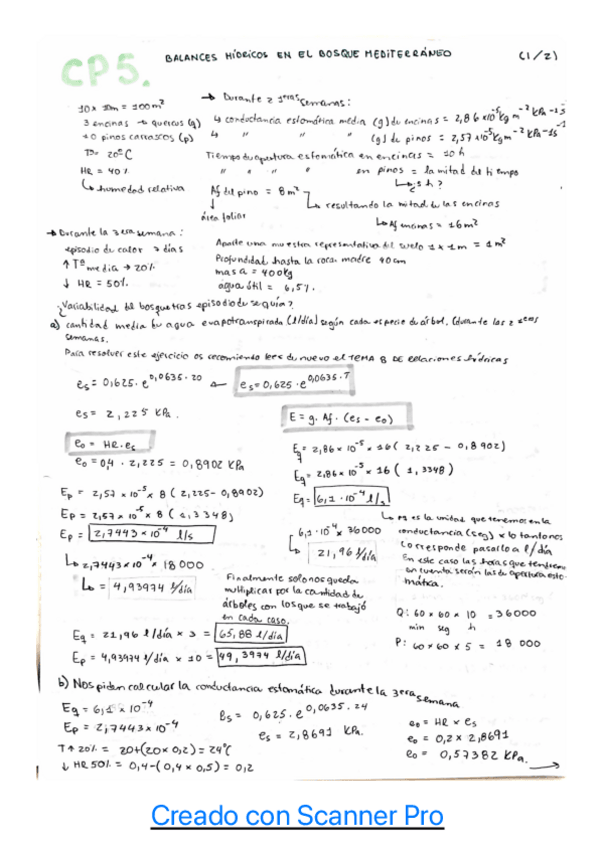 CP5.
BALANCES HÍDRICOS EN EL BOSQUE MEDITERRÁNEO (1/2)
10 x 10m = 100m²
3 encinas → quercus (q)
10 pinos carrascos (p)
Tª = 20ºC
HR = 40%
↳ humedad relativa
→ Durante 2 1eras semanas:
↳ conductancia estomática media (g) de encinas = 2,86 x10⁻⁵ Kg m⁻² KPa⁻¹ s⁻¹
↳ " " " (g) de pinos = 2,57 x10⁻⁵ Kg m⁻² KPa⁻¹ s⁻¹
Tiempo de apertura estomática en encinas = 10h
" " " " en pinos = la mitad de tiempo
↳ ¿5h?
Af del pino = 8m²
↓
área foliar
↳ resultando la mitad de las encinas
↳ Af encinas = 16m²
→ Durante la 3era semana:
episodio de calor 3 días
↑ Tª media → 20%
↓ HR = 50%
Aparte una muestra representativa del suelo 1 x 1m = 1m²
Profundidad hasta la roca madre 40cm
masa = 400kg
agua útil = 6,5%
¿Variabilidad del bosque tras episodio de sequía?
a) cantidad media de agua evapotranspirada (l/día) según cada especie de árbol, (durante las 2 1eras
semanas.
Para resolver este ejercicio os recomiendo leer de nuevo el TEMA 8 DE Relaciones hídricas
es = 0,625 · e^0,0635·20 ← es = 0,625 · e^0,0635·T
es = 2,225 KPa.
e₀ = HR·es
e₀ = 0,4 · 2,225 = 0,8902 KPa
Ep = 2,57 x 10⁻⁵ x 8 (2,225 - 0,8902)
Ep = 2,57 x 10⁻⁵ x 8 (1,3348)
Ep = 2,7443 x 10⁻⁴ l/s
↳ 2,7443 x 10⁻⁴ x 18000
↳ = 4,93974 l/día
E = g. Af. (es - e₀)
Eq = 2,86 x 10⁻⁵ x 16 (2,225 - 0,8902)
Eq = 2,86 x 10⁻⁵ x 16 (1,3348)
Eq = 6,1 · 10⁻⁴ l/s
6,1 · 10⁻⁴ x 36000
21,96 l/día
↳ es la unidad que tenemos en la
conductancia (seg) x lo tanto nos
corresponde pasarlo a l/día
En este caso las horas que tendremos
en cuenta serán las de apertura esto-
mática.
Finalmente solo nos queda
multiplicar por la cantidad de
árboles con los que se trabajó
en cada caso.
Q: 60 x 60 x 10 = 36000
min seg h
P: 60 x 60 x 5 = 18 000
Eq = 21,96 l/día x 3 = 65,88 l/día
Ep = 4,93974 l/día x 10 = 49,3974 l/día
b) Nos piden calcular la conductancia estomática durante la 3era semana
Eq = 6,1 x 10⁻⁴
Ep = 2,7443 x 10⁻⁴
T ↑ 20% = 20+(20 x 0,2) = 24ºC
↓ HR 50% = 0,4-(0,4 x 0,5) = 0,2
es = 0,625 · e^0,0635·24
es = 2,8691 KPa.
e₀ = HR x es
e₀ = 0,2 x 2,8691
e₀ = 0,57382 KPa.
Creado con Scanner Pro